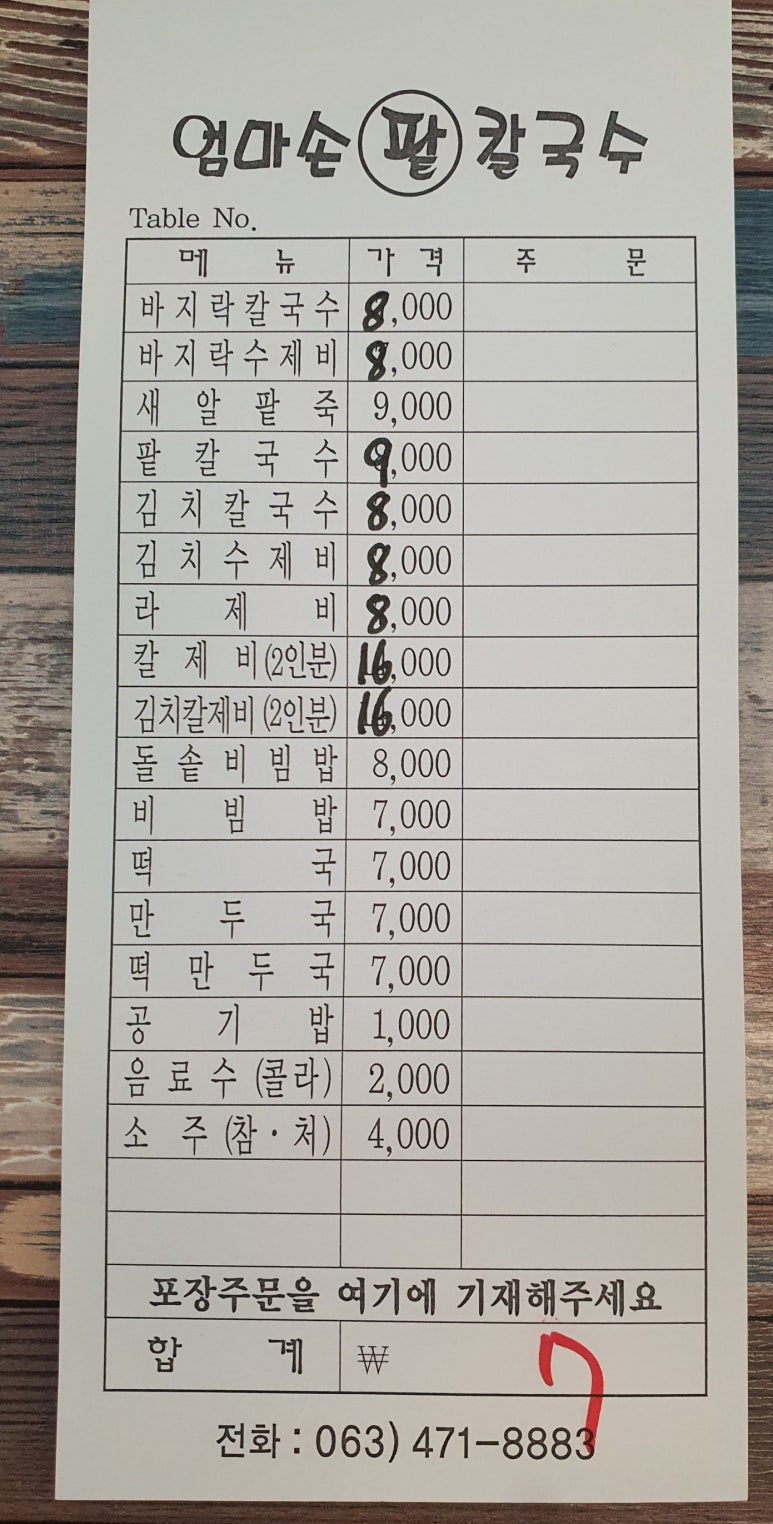 엄마손 팥 칼국수
Table No.
메 뉴 가 격 주 문
바지락칼국수 8,000
바지락수제비 8,000
새 알 팥 죽 9,000
팥 칼 국 수 9,000
김치칼국수 8,000
김치수제비 8,000
라 제 비 8,000
칼 제 비(2인분) 16,000
김치칼제비(2인분) 16,000
돌솥비빔밥 8,000
비 빔 밥 7,000
떡 국 7,000
만 두 국 7,000
떡 만 두 국 7,000
공 기 밥 1,000
음 료 수 (콜라) 2,000
소 주 (참·처) 4,000
포장주문을 여기에 기재해주세요
합 계 ₩ 7
전화 : 063) 471-8883